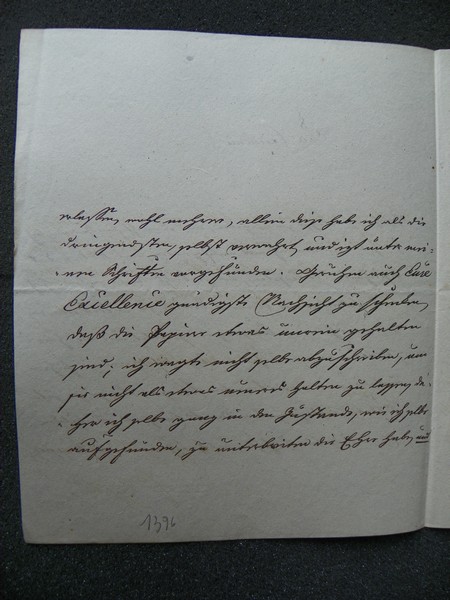 erlassen, wohl mehrere, allein diese habe ich als die
dringendsten, selbst verwahrt, und izt unter mei-
nen Schriften vorgefunden. Geruhen auch Eure
Excellence gnädigste Nachsicht zu schenken,
daß die Papier etwas unrein gehalten
sind; ich wagte nicht selbe abzuschreiben, um
sie nicht als etwas neues halten zu lassen, da-
her ich selbe ganz in dem Zustande, wie ich selbe
aufgefunden, zu unterbreiten die Ehre habe, und
1396